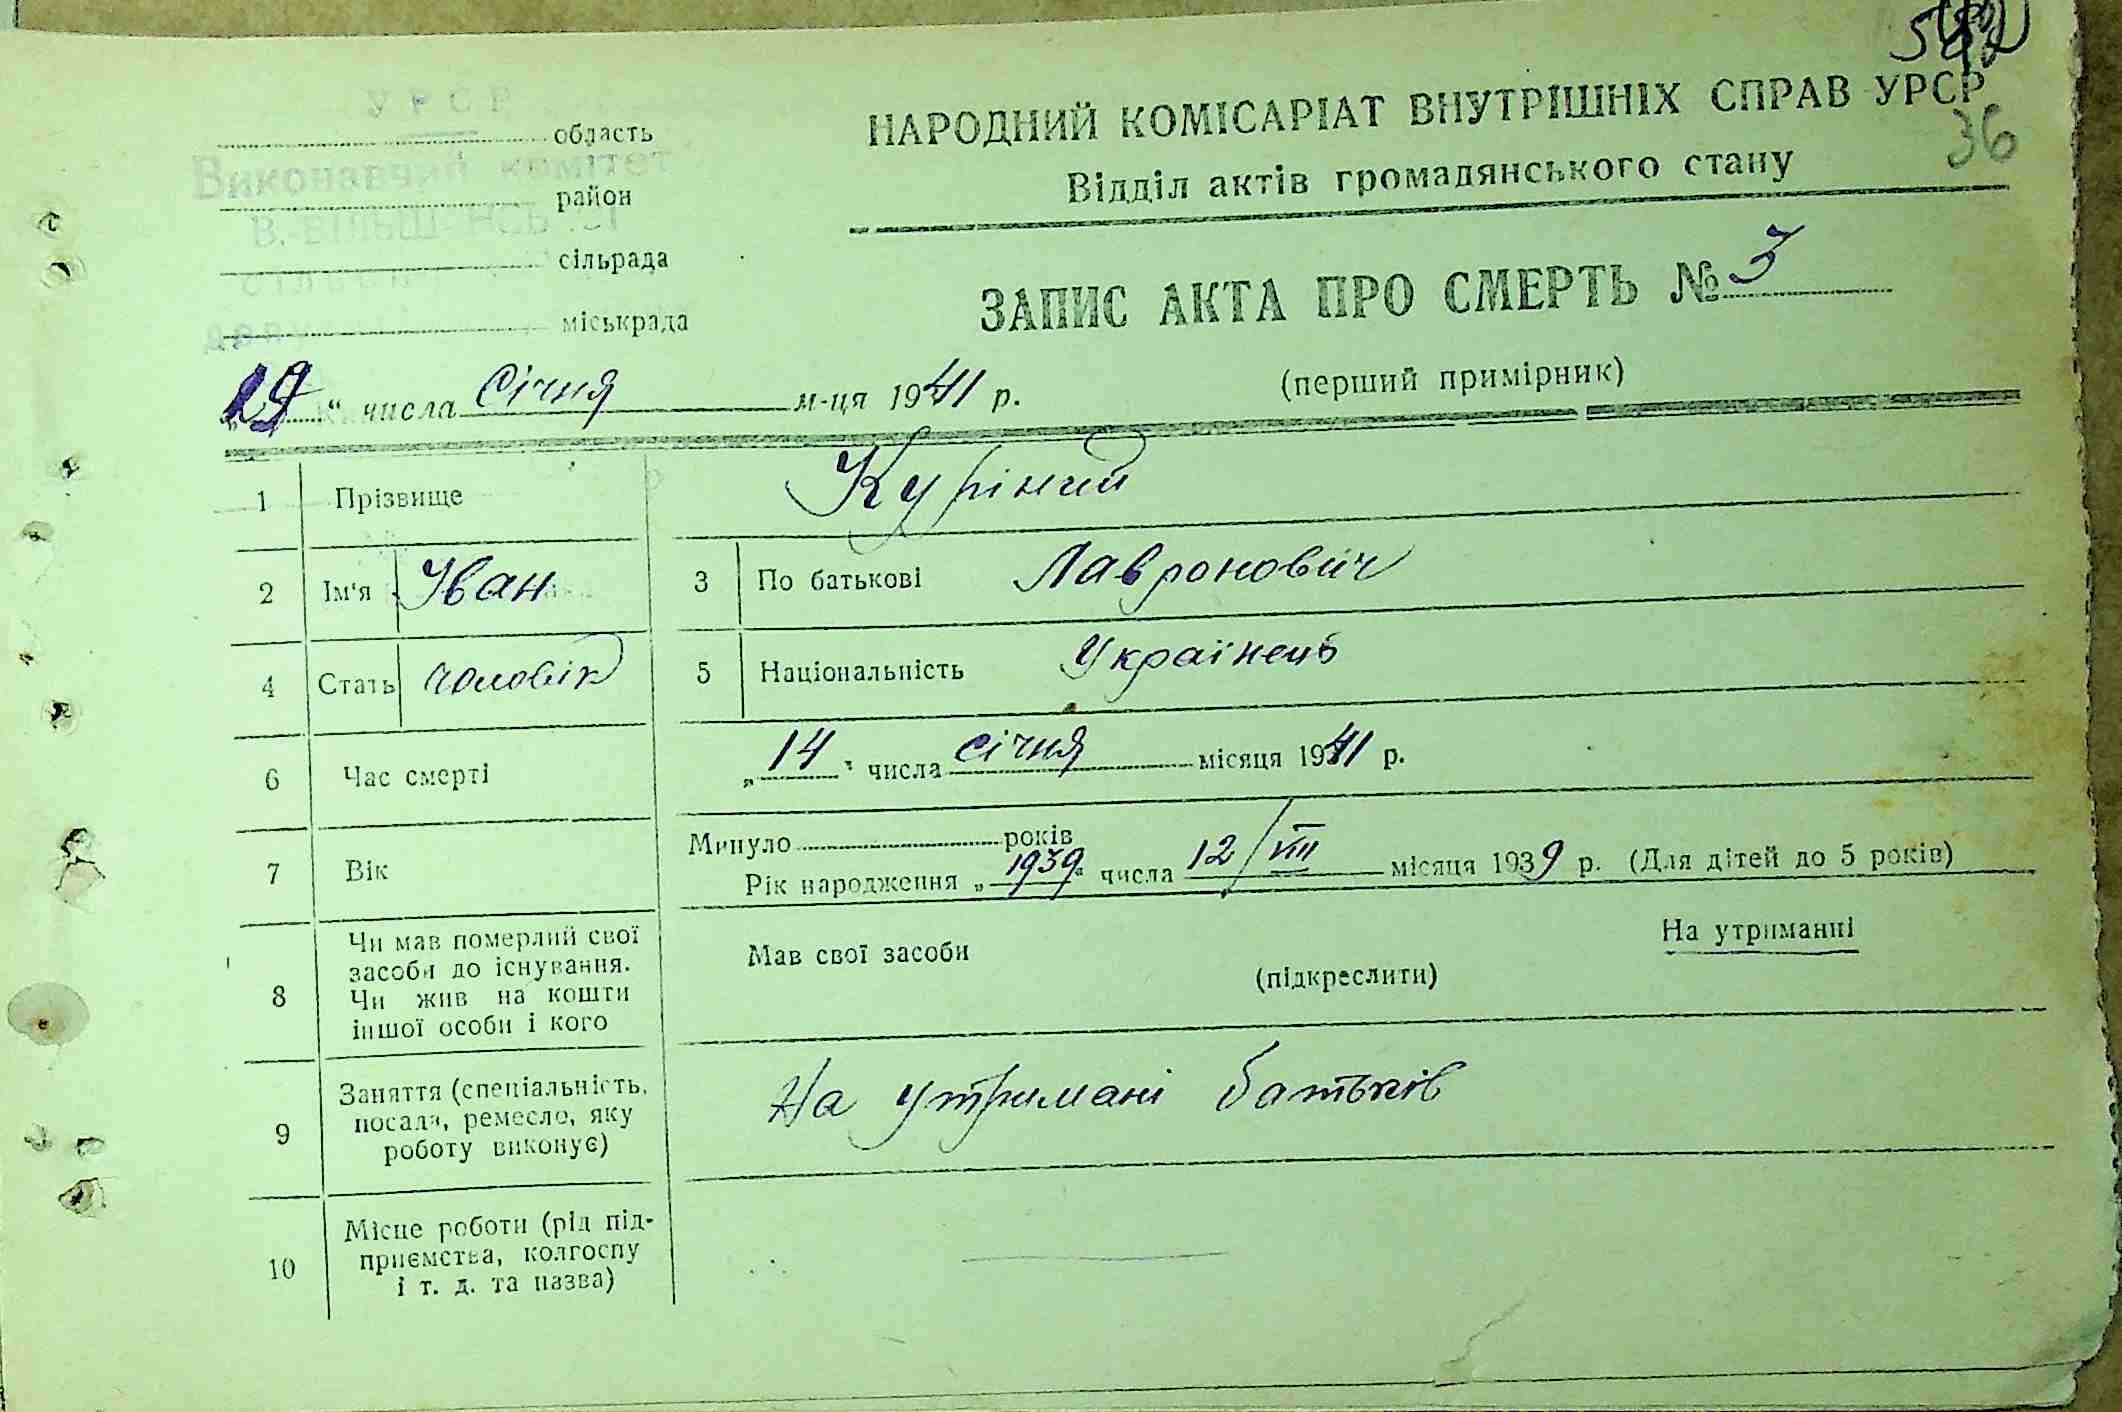 УРСР
область
Виконавчий комітет
район
сільрада
міськрада
НАРОДНИЙ КОМІСАРІАТ ВНУТРІШНІХ СПРАВ УРСР
36
Відділ актів громадянського стану
ЗАПИС АКТА ПРО СМЕРТЬ № 3
(перший примірник)
„29“ числа січня м-ця 1941 р.
1 Прізвище Курінний
2 Ім'я Іван 3 По батькові Лавронович
4 Стать чоловік 5 Національність Українець
6 Час смерті „14“ числа січня місяця 1941 р.
7 Вік Минуло років
Рік народження „1939“ числа 12/VIII місяця 1939 р. (Для дітей до 5 років)
8 Чи мав померлий свої
засоби до існування.
Чи жив на кошти
іншої особи і кого
Мав свої засоби (підкреслити) На утриманні
9 Заняття (спеціальність,
посада, ремесло, яку
роботу виконує)
На утримані батьків
10 Місце роботи (рід під-
приємства, колгоспу
і т. д. та назва)